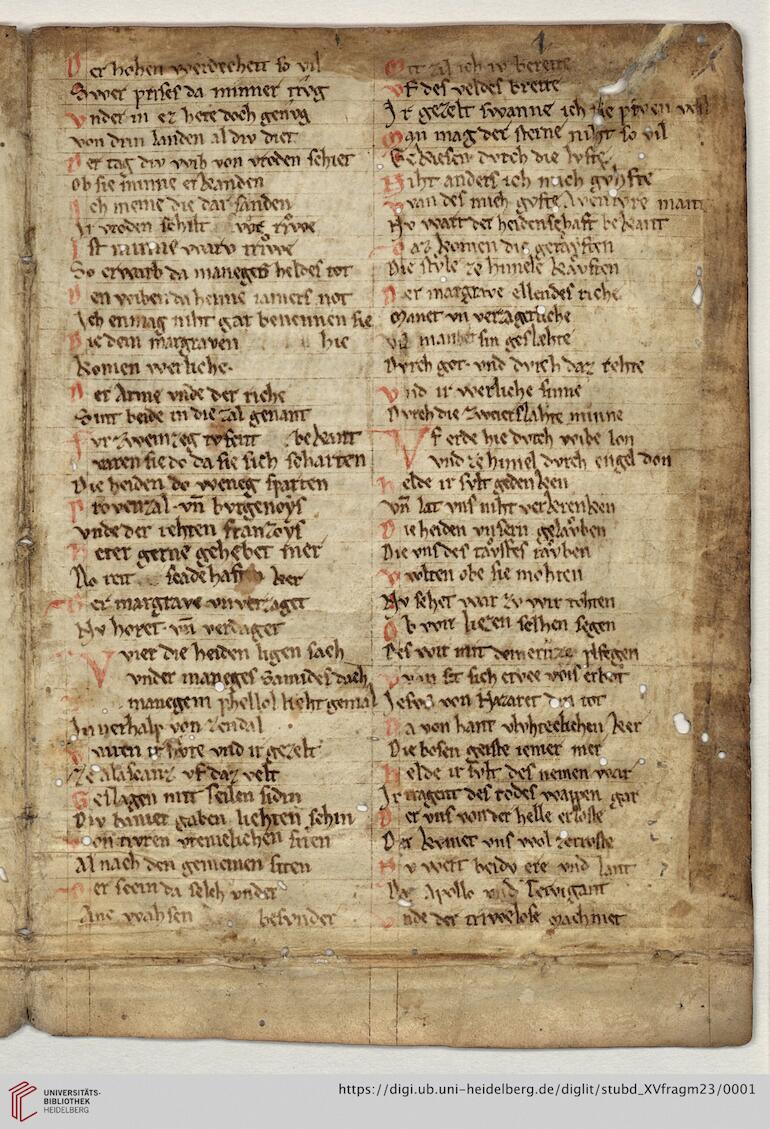 Der hohen werdecheit so vil
Swer prises da minner trůg
Vnder in ez hete doch genůg
von drin landen al div diet
Der tag div wib von vroden schiet
Ob sie minne erkanden
Ich meine die dar sanden
Ir vroden schilt
Ist minne waru trůwe
So erwarb da maneges heldes tot
Den wiben da heime iamers not
Ich enmag niht gar benennen sie
Die dem margraven hie
Komen werliche
Der Arme vnde der riche
Sint beide in die zal genant
Fvr zweinzeg tvsent bekant
waren sie do da sie sich scharten
Die heiden do weneg sparten
Provenzal vn̄ bvrgenoys
vnde der rehten franzoys
Heter gerne gehebet mer
Do reit her
Der margrave vnverzaget
Nv horet vn̄ verdaget
Wier die heiden ligen sach
vnder maneges samides dach
manegem phellol lieht gemal
Innerhalp von zendal
waren ir hvte vnd ir gezelt
Ze alascanz vf daz velt
Geslagen mit seilen sidin
Div banier gaben liehten schin
von tivren vremelichen siten
Al nach den gemeinen siten
Der schein da selch vnder
Ane wahsen besvnder
Mit zil ich iv bereite
Vf des veldes breite
Ir gezelt swanne ich sie prven wil
Man mag der sterne niht so vil
Gekiesen dvrch die lvfte
Niht anders ich mich gvhfte
Wan des mich gofte Aventvre mant
Nv wart der heidenschaft bekant
Daz komen die getavften
Die stvle ze himele kavften
Der margrave ellendes riche
Manet vn verzagetliche
sin geslæhte
Dvrch got vnd dvrch daz rehte
Vnd ir werliche sinne
Dvrch die zweier slahte minne
Vf erde hie dvrch wibe lon
vnd ze himel dvrch engel don
Helde ir svlt gedenken
vn̄ lat vns niht verkrenken
Die heiden vnsern gelavben
Die vns des tavffes ravben
Wolten obe sie mohten
Nv sehet war zv wir tohten
Ob wir liezen selhen segen
Des wir mit dem crivze pflegen
wan sit sich erbot
Iesvs von Nazaret din tot
Da von hant vlvhteclichen ker
Die bosen geiste iemer mer
Helde ir svlt des nemen war
Ir tragent des todes wappen gar
Der vns von der helle erloste
Der kvmet vns wol zetroste
Nv wert beidv ere vnd lant
Daz Apollo vnd Tervigant
vnde der trivwelose Machmet
UNIVERSITÄTS-
BIBLIOTHEK
HEIDELBERG
https://digi.ub.uni-heidelberg.de/diglit/stubd_XVfragm23/0001